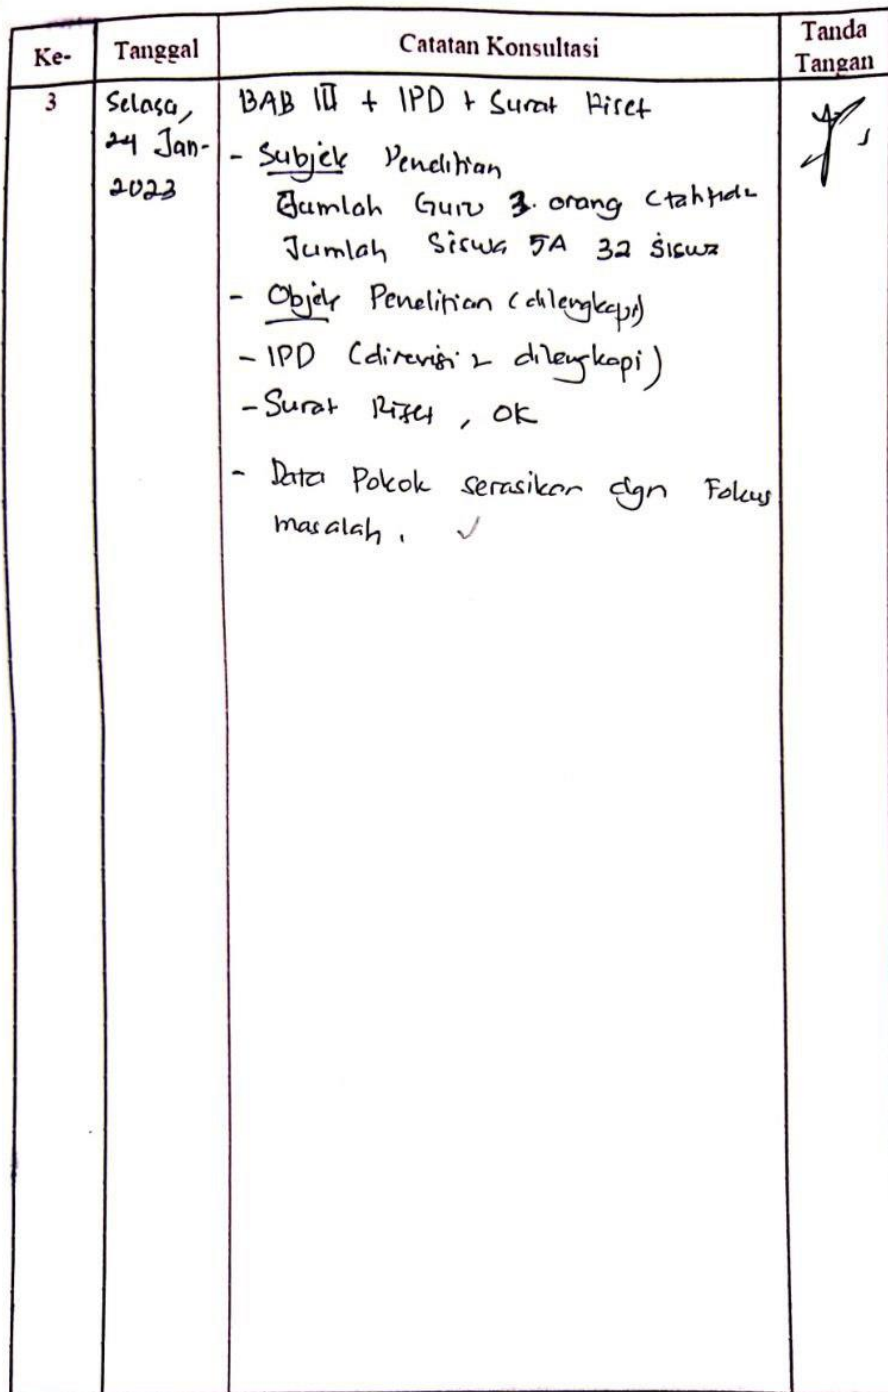 Ke-
Tanggal
Catatan Konsultasi
Tanda
Tangan
3
Selasa,
24 Jan-
2023
BAB III + IPD + Surat Riset
- Subjek Penelitian
Jumlah Guru 3 orang
Jumlah Siswa 5A 32 siswa
- Objek Penelitian (dilengkapi)
- IPD (direvisi & dilengkapi)
- Surat Riset, OK
- Data Pokok serasikan dgn Fokus
masalah. ✓